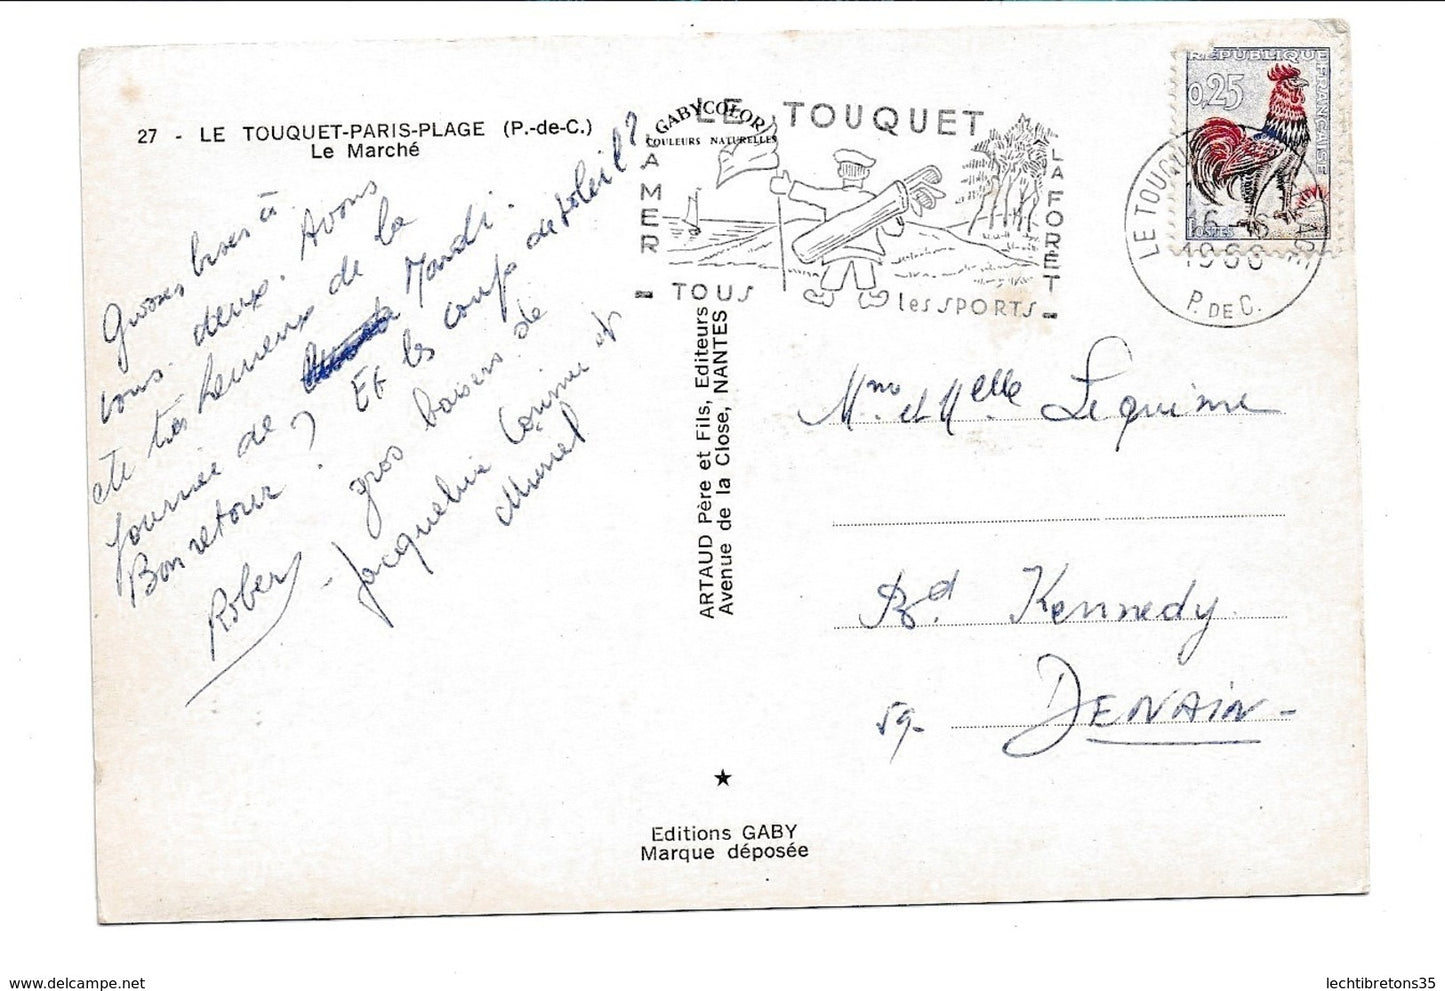 27 - LE TOUQUET-PARIS-PLAGE (P.-de-C.)
Le Marché
GABYCOLOR
COULEURS NATURELLES
LE TOUQUET
LA MER
LA FORET
TOUS les SPORTS
REPUBLIQUE FRANÇAISE
0,25
POSTES
LE TOUQUET
16
P. DE C.
Grosses bises à
vous deux. Avons
été très heureux de la
journée de Mardi.
Bon retour ? Et les coups de soleil ?
Robert
gros baisers de
Jacqueline Corinne et
Muriel
ARTAUD Père et Fils, Editeurs
Avenue de la Close, NANTES
Mme et Melle Lequime
Bd Kennedy
59- DENAIN-
Editions GABY
Marque déposée
www.delcampe.net
lechtibretons35